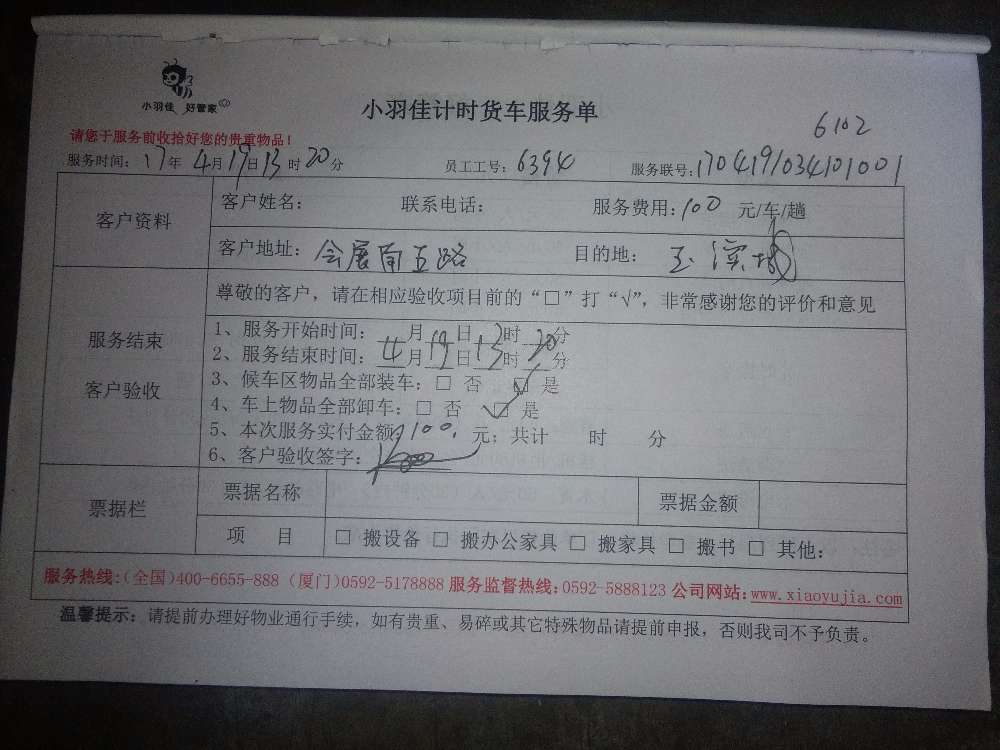 小羽佳 好管家
小羽佳计时货车服务单
6102
请您于服务前收拾好您的贵重物品！
服务时间：17年4月19日13时20分 员工工号：6394 服务联号：1704191034101001
客户资料 客户姓名： 联系电话： 服务费用：100 元/车/趟
客户地址：会展南五路 目的地：玉滨城
尊敬的客户，请在相应验收项目前的“□”打“√”，非常感谢您的评价和意见
服务结束
客户验收
1、服务开始时间： 月 日 时 分
2、服务结束时间：4月19日13时20分
3、候车区物品全部装车：□ 否 □ 是
4、车上物品全部卸车：□ 否 □ 是
5、本次服务实付金额：100.元；共计 时 分
6、客户验收签字：
票据栏 票据名称 票据金额
项 目 □ 搬设备 □ 搬办公家具 □ 搬家具 □ 搬书 □ 其他：
服务热线：（全国）400-6655-888（厦门）0592-5178888 服务监督热线：0592-5888123 公司网站：www.xiaoyujia.com
温馨提示：请提前办理好物业通行手续，如有贵重、易碎或其它特殊物品请提前申报，否则我司不予负责。